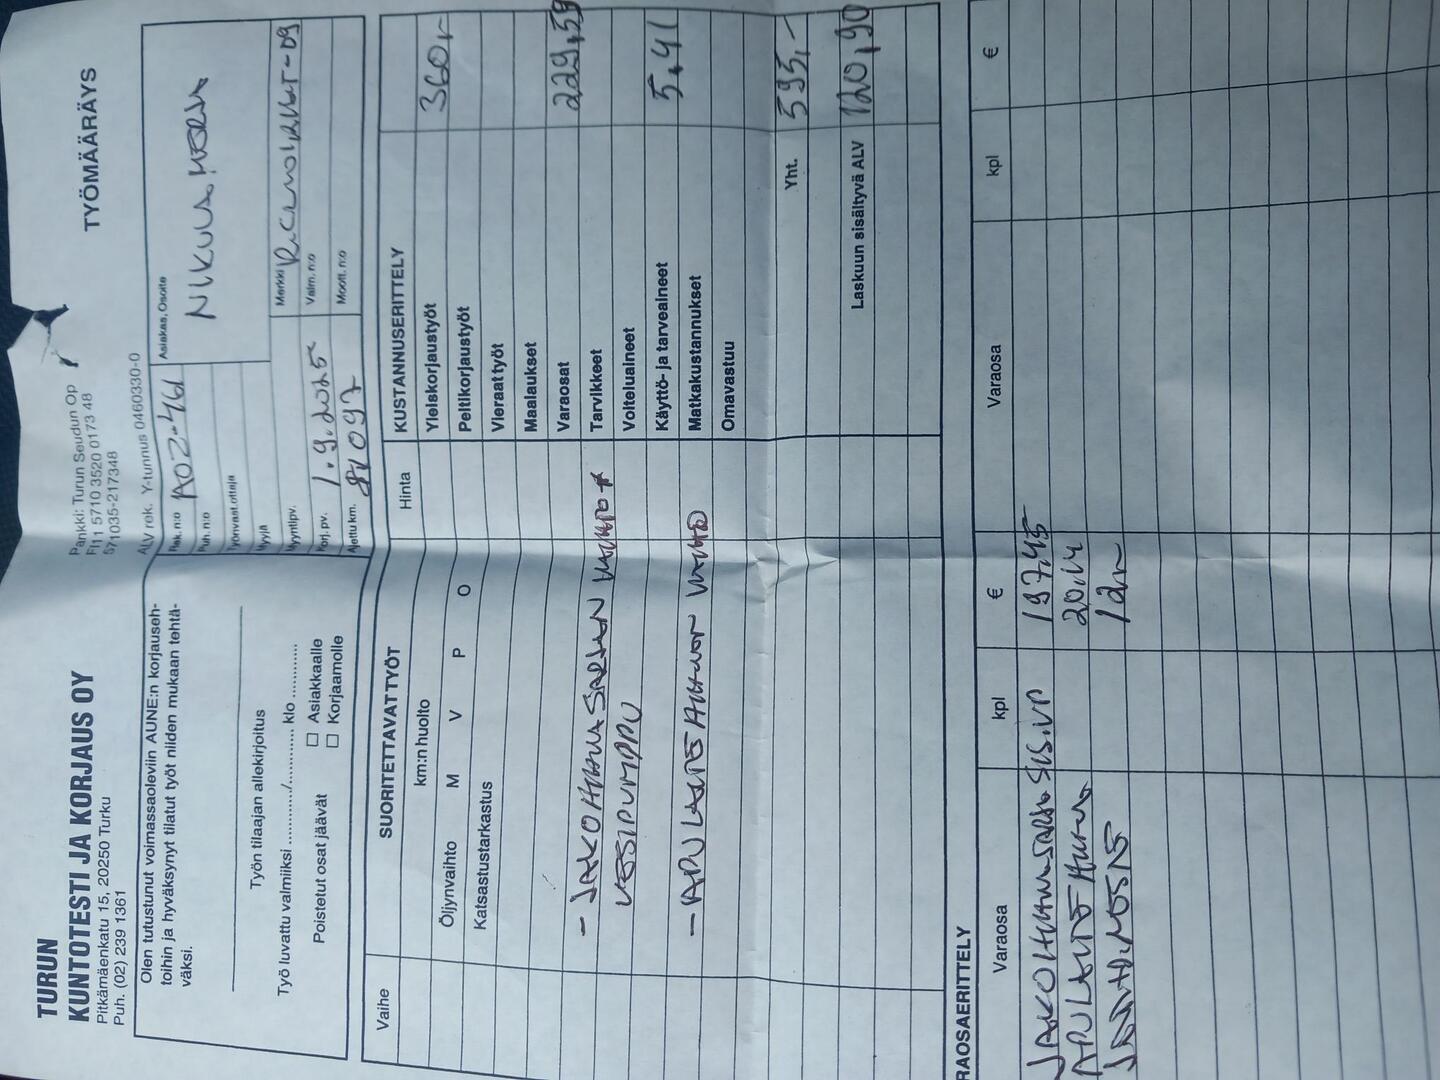 TURUN
KUNTOTESTI JA KORJAUS OY
Pitkämäenkatu 15, 20250 Turku
Puh. (02) 239 1361
Pankki: Turun Seudun Op
FI11 5710 3520 0173 48
571035-217348
ALV rek. Y-tunnus 0460330-0
TYÖMÄÄRÄYS
Olen tutustunut voimassaoleviin AUNE:n korjauseh-
toihin ja hyväksynyt tilatut työt niiden mukaan tehtä-
väksi.
Työn tilaajan allekirjoitus
Työ luvattu valmiiksi ............/............ klo ............
Poistetut osat jäävät
Asiakkaalle
Korjaamolle
Rek. n:o AOZ-461
Puh. n:o
Työnvast.ottaja
Myyjä
Myyntipv.
Korj. pv. 1.9.2025
Ajettu km. 81097
Asiakas, Osoite
NIKULA MERJA
Merkki
Valm. n:o
Moott. n:o
Vaihe
SUORITETTAVAT TYÖT
Hinta
km:n huolto
Öljynvaihto M V P O
Katsastustarkastus
- JAKOHIHNASARJAN VAIHTO +
VESIPUMPPU
- APULAITEHIHNAN VAIHTO
KUSTANNUSERITTELY
Yleiskorjaustyöt 360,-
Peltikorjaustyöt
Vieraat työt
Maalaukset
Varaosat 229,59
Tarvikkeet
Voiteluaineet
Käyttö- ja tarveaineet 5,41
Matkakustannukset
Omavastuu
Yht. 595,-
Laskuun sisältyvä ALV 120,90
RAOSAERITTELY
Varaosa kpl € Varaosa kpl €
JAKOHIHNASARJA SIS. VP 197,45
APULAITEHIHNA 20,14
JÄÄHDYNESTE 12,-